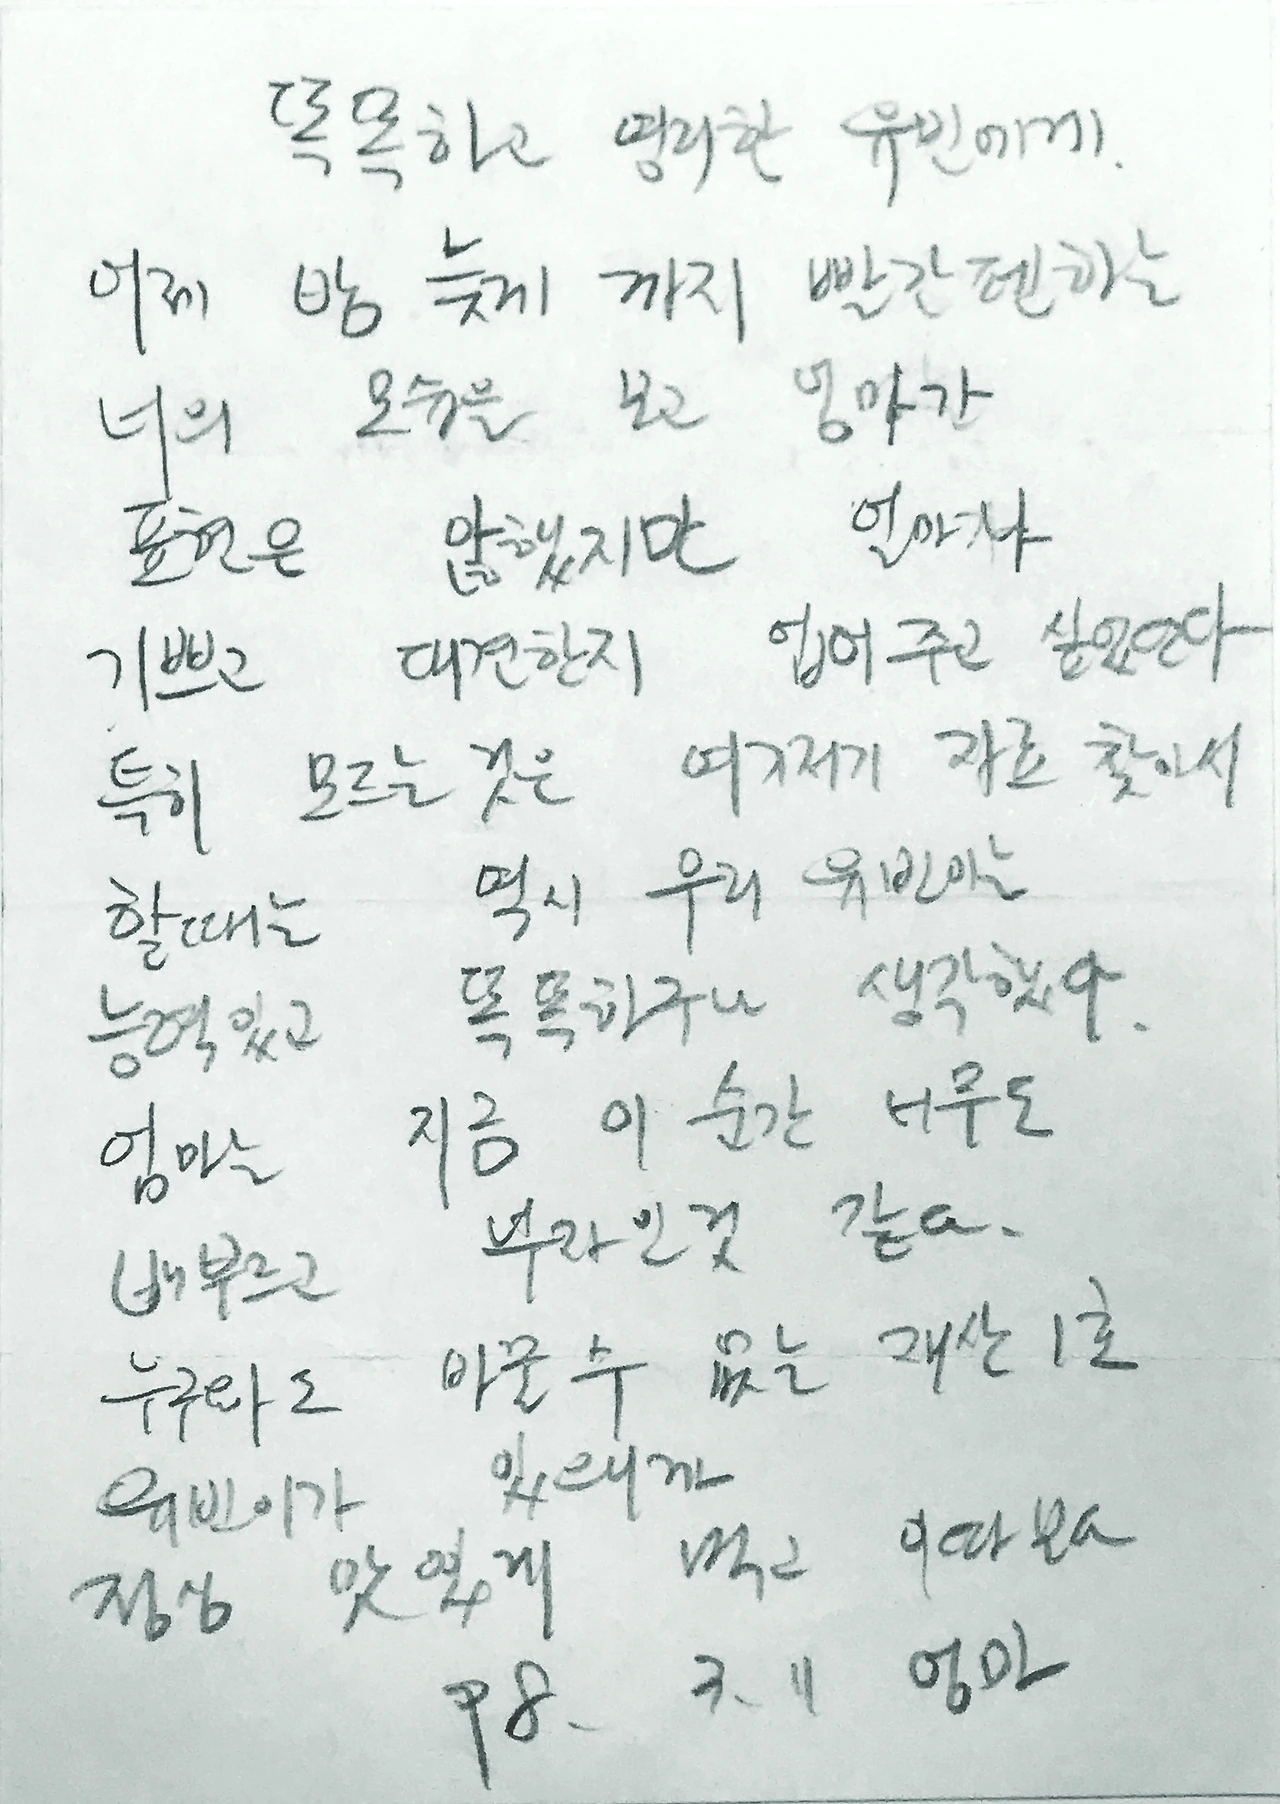 똑똑하고 영리한 유빈에게.
어제 밤 늦게 까지 빨간펜하는
너의 모습을 보고 엄마가
표현은 않했지만 얼마나
기쁘고 대견한지 업어주고 싶었단다
특히 모르는 것은 여기저기 자료 찾아서
할때는 역시 우리 유빈이는
능력있고 똑똑하구나 생각했어.
엄마는 지금 이 순간 너무도
배부르고 부자인것 같아.
누구와도 바꿀 수 없는 재산 1호
유빈이가 있으니까
점심 맛있게 먹고 이따보아
98. 3. 11 엄마